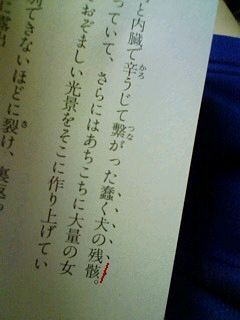 と内臓で辛うじて繋がった蠢く犬の残骸。
かろ
つな
っていて、さらにはあちこちに大量の女
おぞましい光景をそこに作り上げてい
できないほどに裂け、
さ